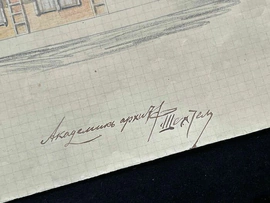 Академикъ архит. Ф Шехтель